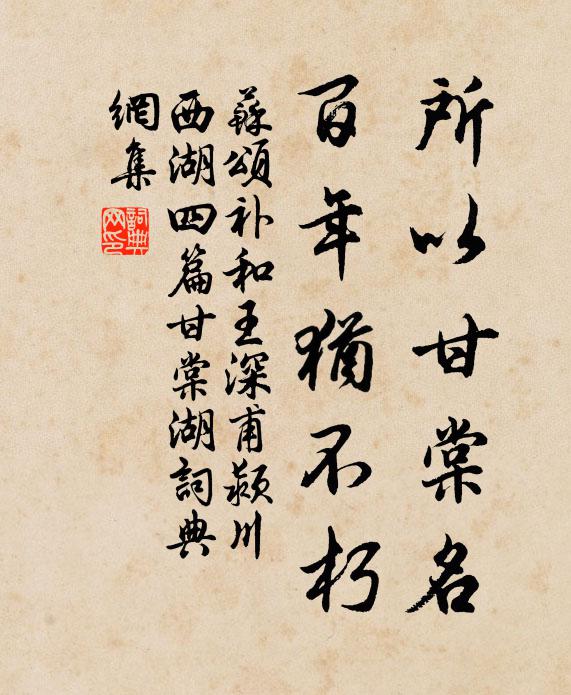 所以甘棠名
百年犹不朽
蘇頌补和王深甫颍川
西湖四篇甘棠湖詞典
網集
詞典
网印